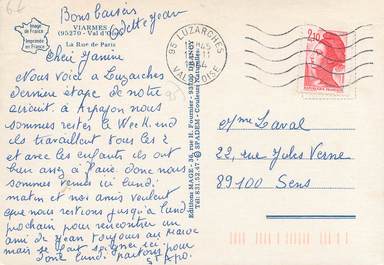 Bons baisers
Odette Jean
Image
de France
Imprimée
en France
VIARMES
(95270 - Val d'Oise)
La Rue de Paris
Chère Janine
Nous voici à Luzarches
dernière étape de notre
circuit à Arpajon nous
sommes restés le Week-end
ils travaillent tous les 2
et avec les enfants ils ont
bien assez à faire donc nous
sommes venus ici lundi
matin et nos amis veulent
que nous restions jusqu'à lundi
prochain pour rencontrer un
ami de Jean toujours au Maroc
mais se fait soigner ici
donc lundi partons pour
St Apo.
Editions MAGE - 36, rue H. Fournier - 93700 DRANCY
Tél. 831.52.47 - © SPADEM - Couleurs Naturelles
95 LUZARCHES
VAL D'OISE
2,10
RÉPUBLIQUE FRANÇAISE
Mme Laval
22, rue Jules Verne
89100 Sens